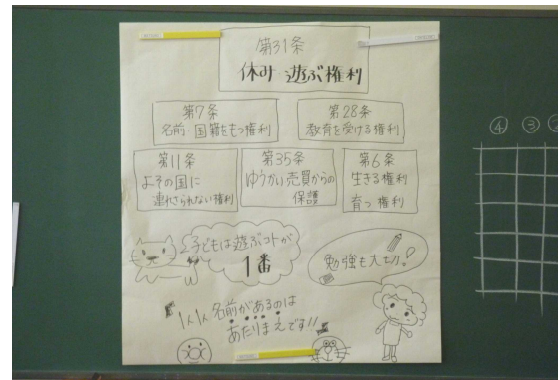 第31条
休み 遊ぶ権利
第7条
名前・国籍をもつ権利
第28条
教育を受ける権利
第11条
よその国に
連れさられない権利
第35条
ゆうかい売買からの
保護
第6条
生きる権利
育つ権利
子どもは遊ぶコトが
1番
勉強も大切!
1人1人名前があるのは
あたりまえです!!
④ ③